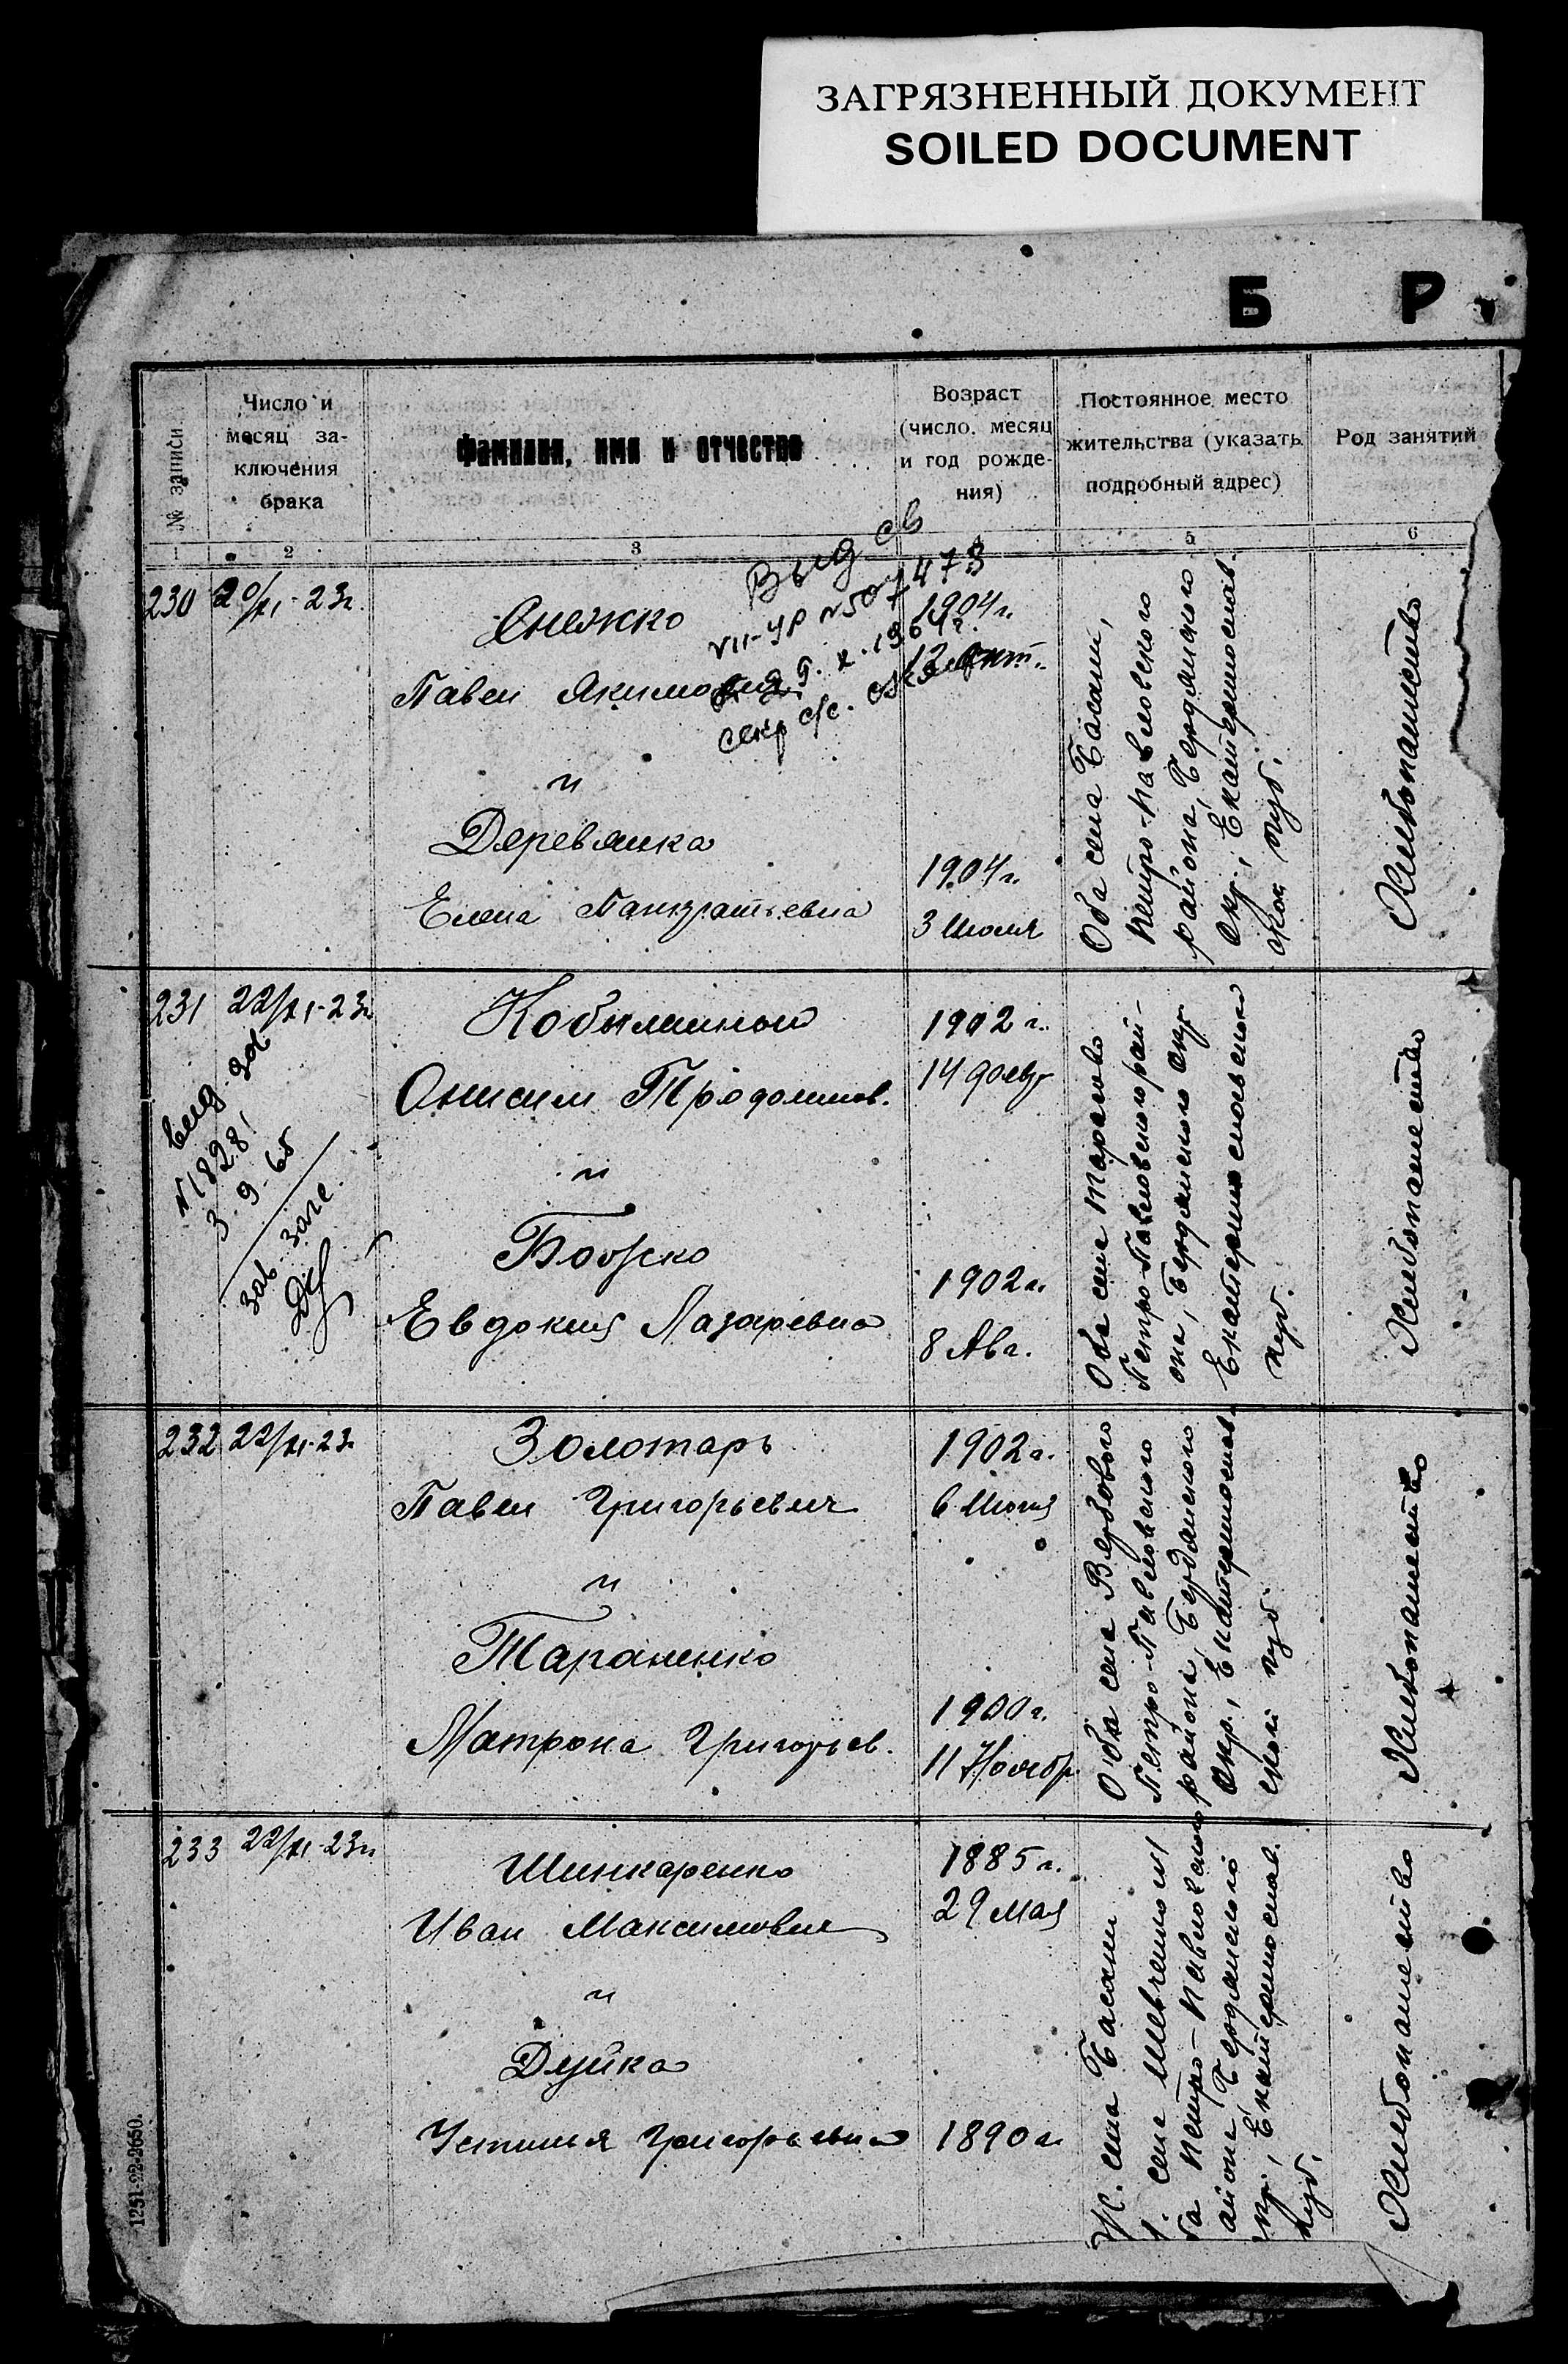 ЗАГРЯЗНЕННЫЙ ДОКУМЕНТ
SOILED DOCUMENT
Б Р
№ записи
Число и
месяц за-
ключения
брака
Фамилия, имя и отчество
Возраст
(число, месяц
и год рожде-
ния)
Постоянное место
жительства (указать
подробный адрес)
Род занятий
1 2 3 4 5 6
230
20/XI-23г.
Выд св
VII-УР №507473
5. X. 1964г.
секр с/с.
Снежко
Павел Якимович
и
Деревянка
Елена Панкратьевна
1904г.
1904г.
3 Июля
Оба села Басани,
Петро-Павловского
района, Бердянского
Окр., Екатеринослав-
ской губ.
Хлебопашество
231
22/XI-23г
выд.
№18281
3-9-65
зав. загс.
Кобылинский
Онисим
и
Божко
Евдокия Лазаревна
1902г.
14 февр
1902г.
8 Авг.
Оба села
Петро-Павловского рай-
она, Бердянского Окр
Екатеринославской
губ.
Хлебопашество
232
22/XI-23г
Золотарь
Павел Григорьевич
и
Тараненко
Матрона Григорьев.
1902г.
6 Июня
1900г.
11 Ноябр.
Оба села Вербового
Петро-Павловского
района, Бердянского
Окр., Екатеринослав-
ской губ.
Хлебопашество
233
22/XI-23г.
Шинкаренко
Иван Максимович
и
Дуйка
Устинья Григорьевна
1885г.
29 Мая
1890г
Ж. села Басани
села
Петро-Павловского
района Бердянской
Окр., Екатеринослав.
губ.
Хлебопашество
1251-22-2650.